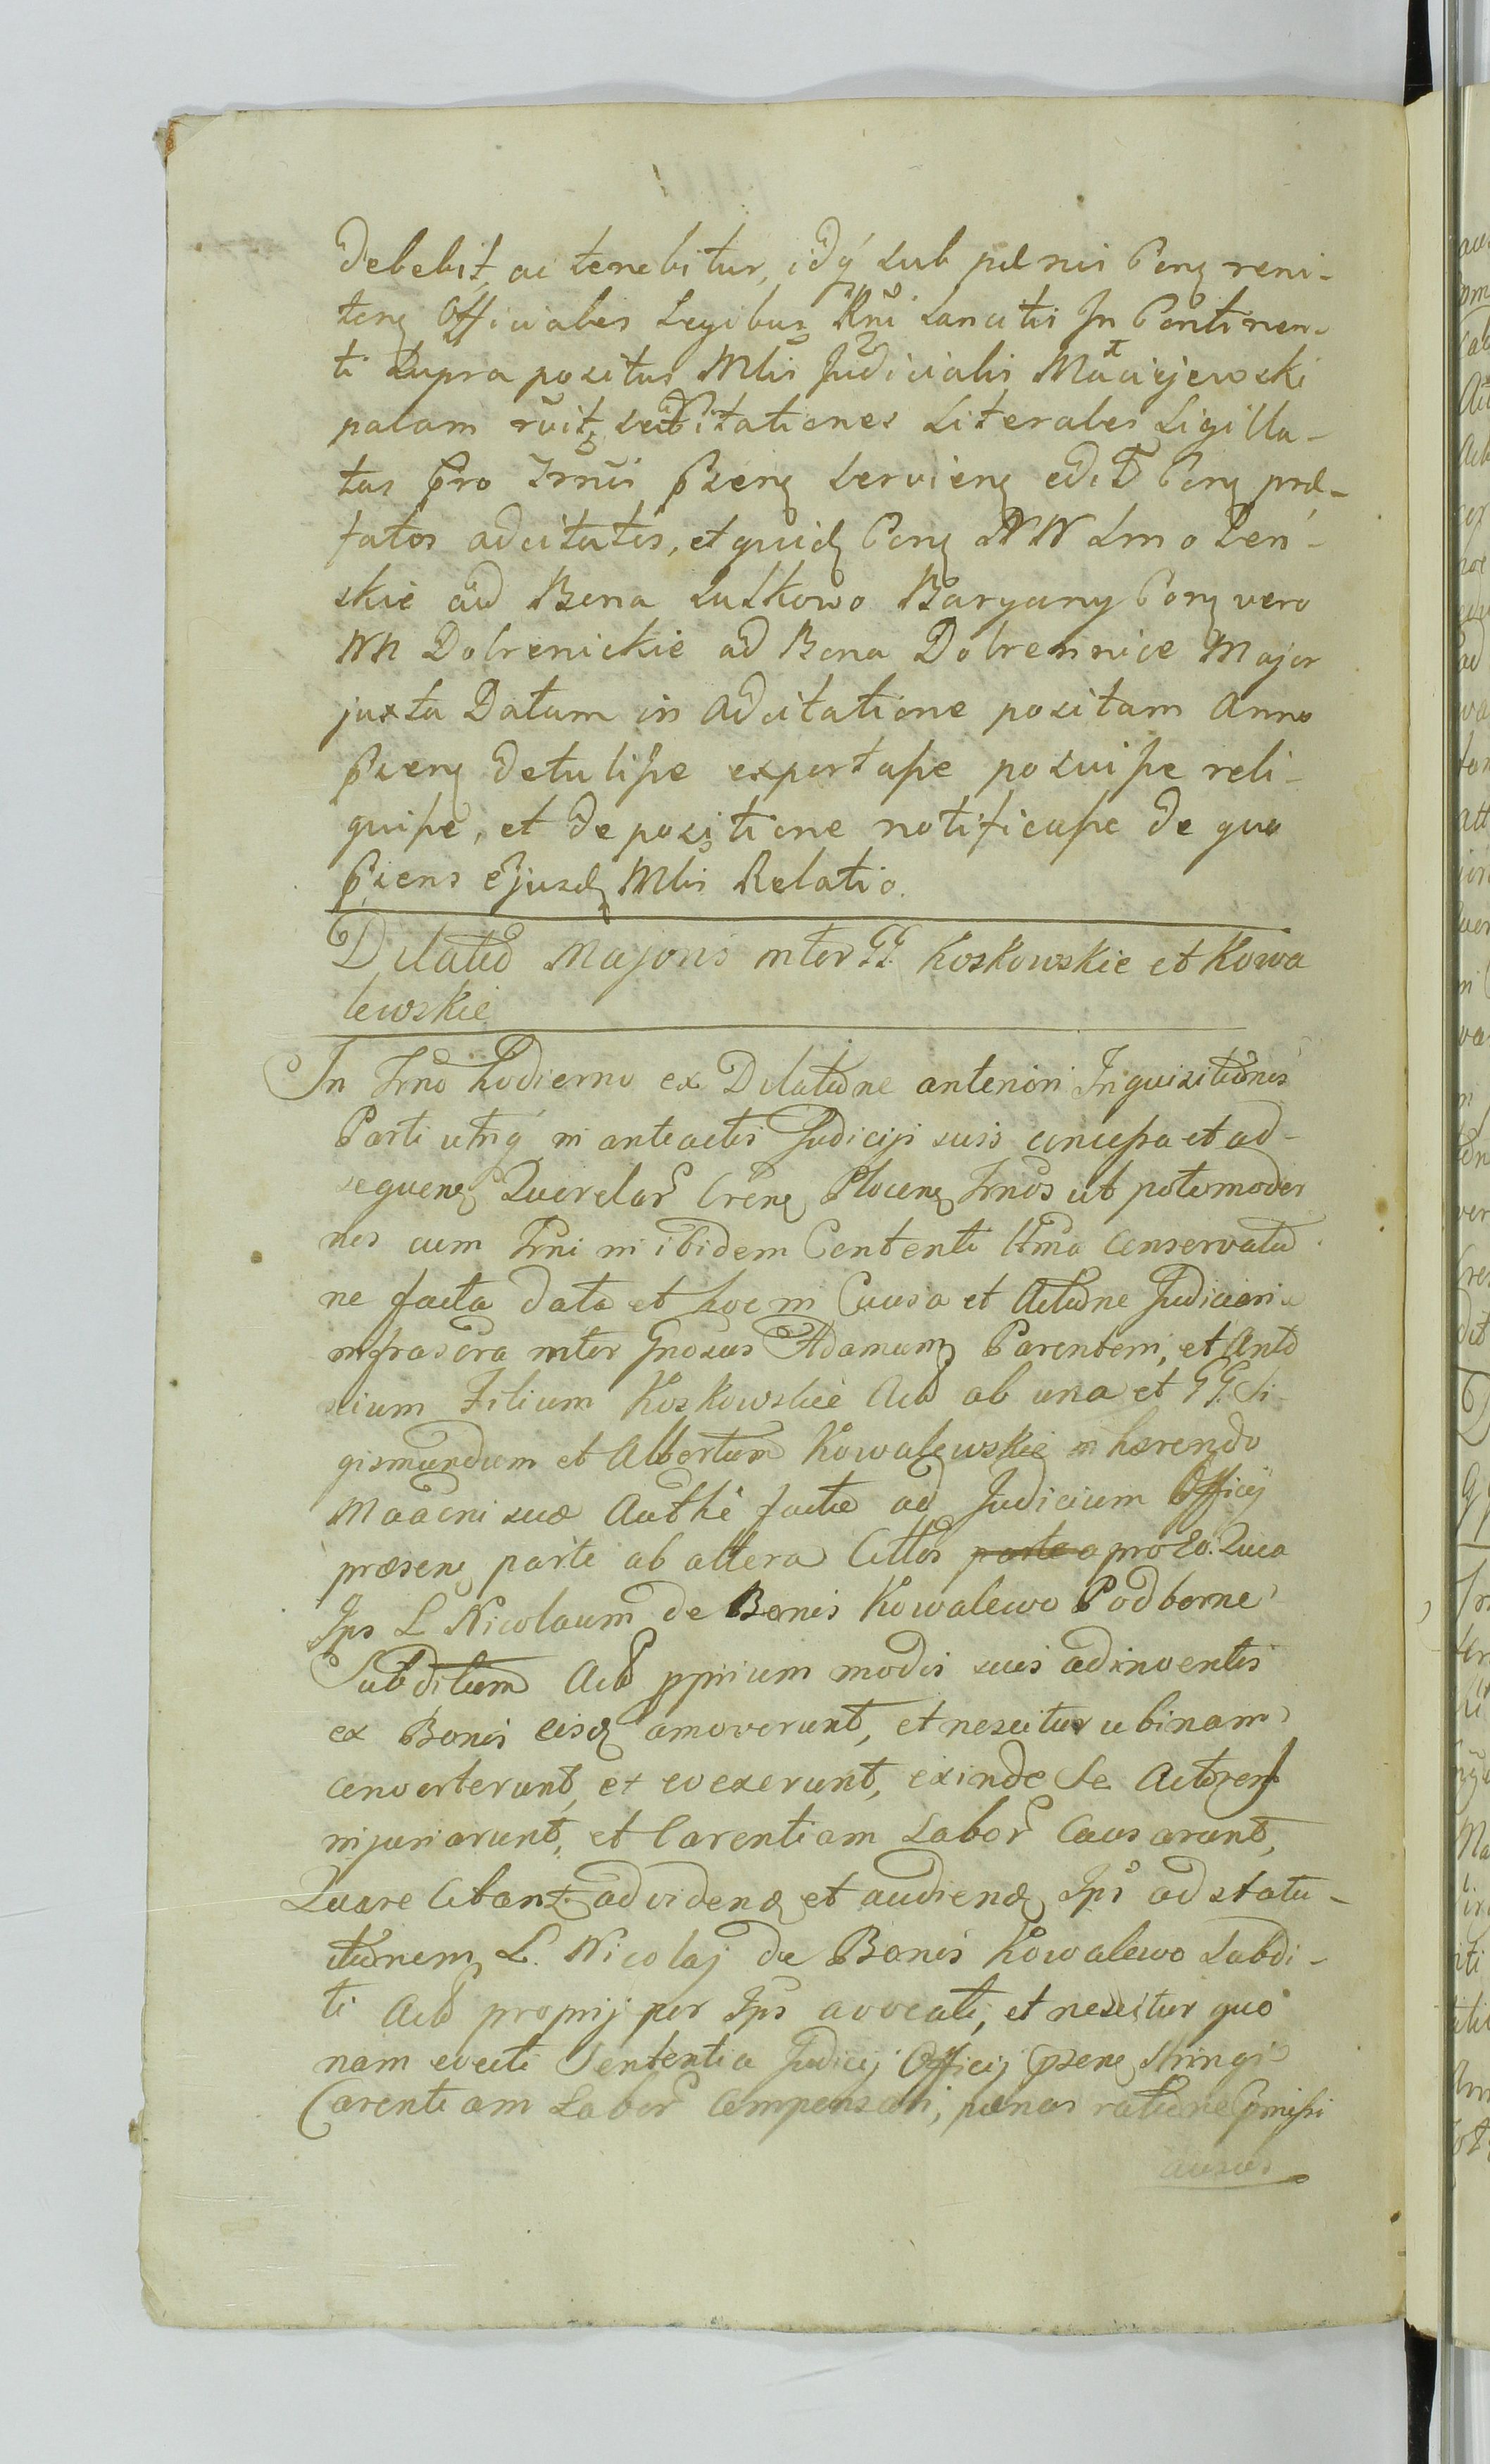 debebit, ac tenebitur, idq́ sub pœnis Conꝫ reni-
tenꝫ Officiales Legibus Rñi sancitis In Continen-
ti Supra positus Mlis Judicialis Maciejewski
palam rc̃it, se Citationes Literales Sigilla-
tas pro Trñis p̃senꝫ servienꝫ edit Conꝫ præ-
fatos adcitatos, et quidꝫ Conꝫ NN Smolen-
skie ad Bona Suskowo Baryany Conꝫ vero
NN Dobrenickie ad Bona Dobrennice Major
juxta Datam in Adcitatione positam Anno
p̃senꝫ detulisse exportasse posuisse reli-
quisse, et de positione notificasse de quo
p̃sens ejusdꝫ Mlis Relatio.
Dilatio Majoris inter GG. Koskowskie et Kowa
lewskie
In Trno hodierno ex Dilatione anteriori Inquisitionis
Parti utriq́ in anteactis Judicijs suis concessa et ad-
sequenꝫ Querelar Crenꝫ Plocenꝫ Trnos ut pote moder
nos cum Trni in ibidem Contenti Ima Conservatio
ne facta data et hoc in Causa et Actione Judiciaria
infrascra inter Gnosus Adamum Parentem, et Anto
nium Filium Koskowskie Act ab una et GG. Si-
gismundum et Albertum Kowalewskie inhærendo
suæ Authi factæ ad Judicium Officij
præsenꝫ parte ab altera Cittos parte a pro Eo. Quia
Ips L Nicolaum de Bonis Kowalewo Podborne
Subditum Act pprium modis suis adinventis
ex Bonis eisdꝫ amoverunt, et nescitur ubinam
converterunt, et evexerunt, exinde Se Actores
injuriarunt, et Carentiam Labor Causarunt,
Quare Citant ad videnꝫ et audienꝫ Ips ad statu-
itionem L. Nicolaj de Bonis Kowalewo Subdi-
ti Act proprij per Ips avocati, et nescitur quo
nam evecti Sententia Judicij Officij p̃senꝫ Stringi
Carentiam Labor Compensari, pœnas ratione p̃missi
ausus